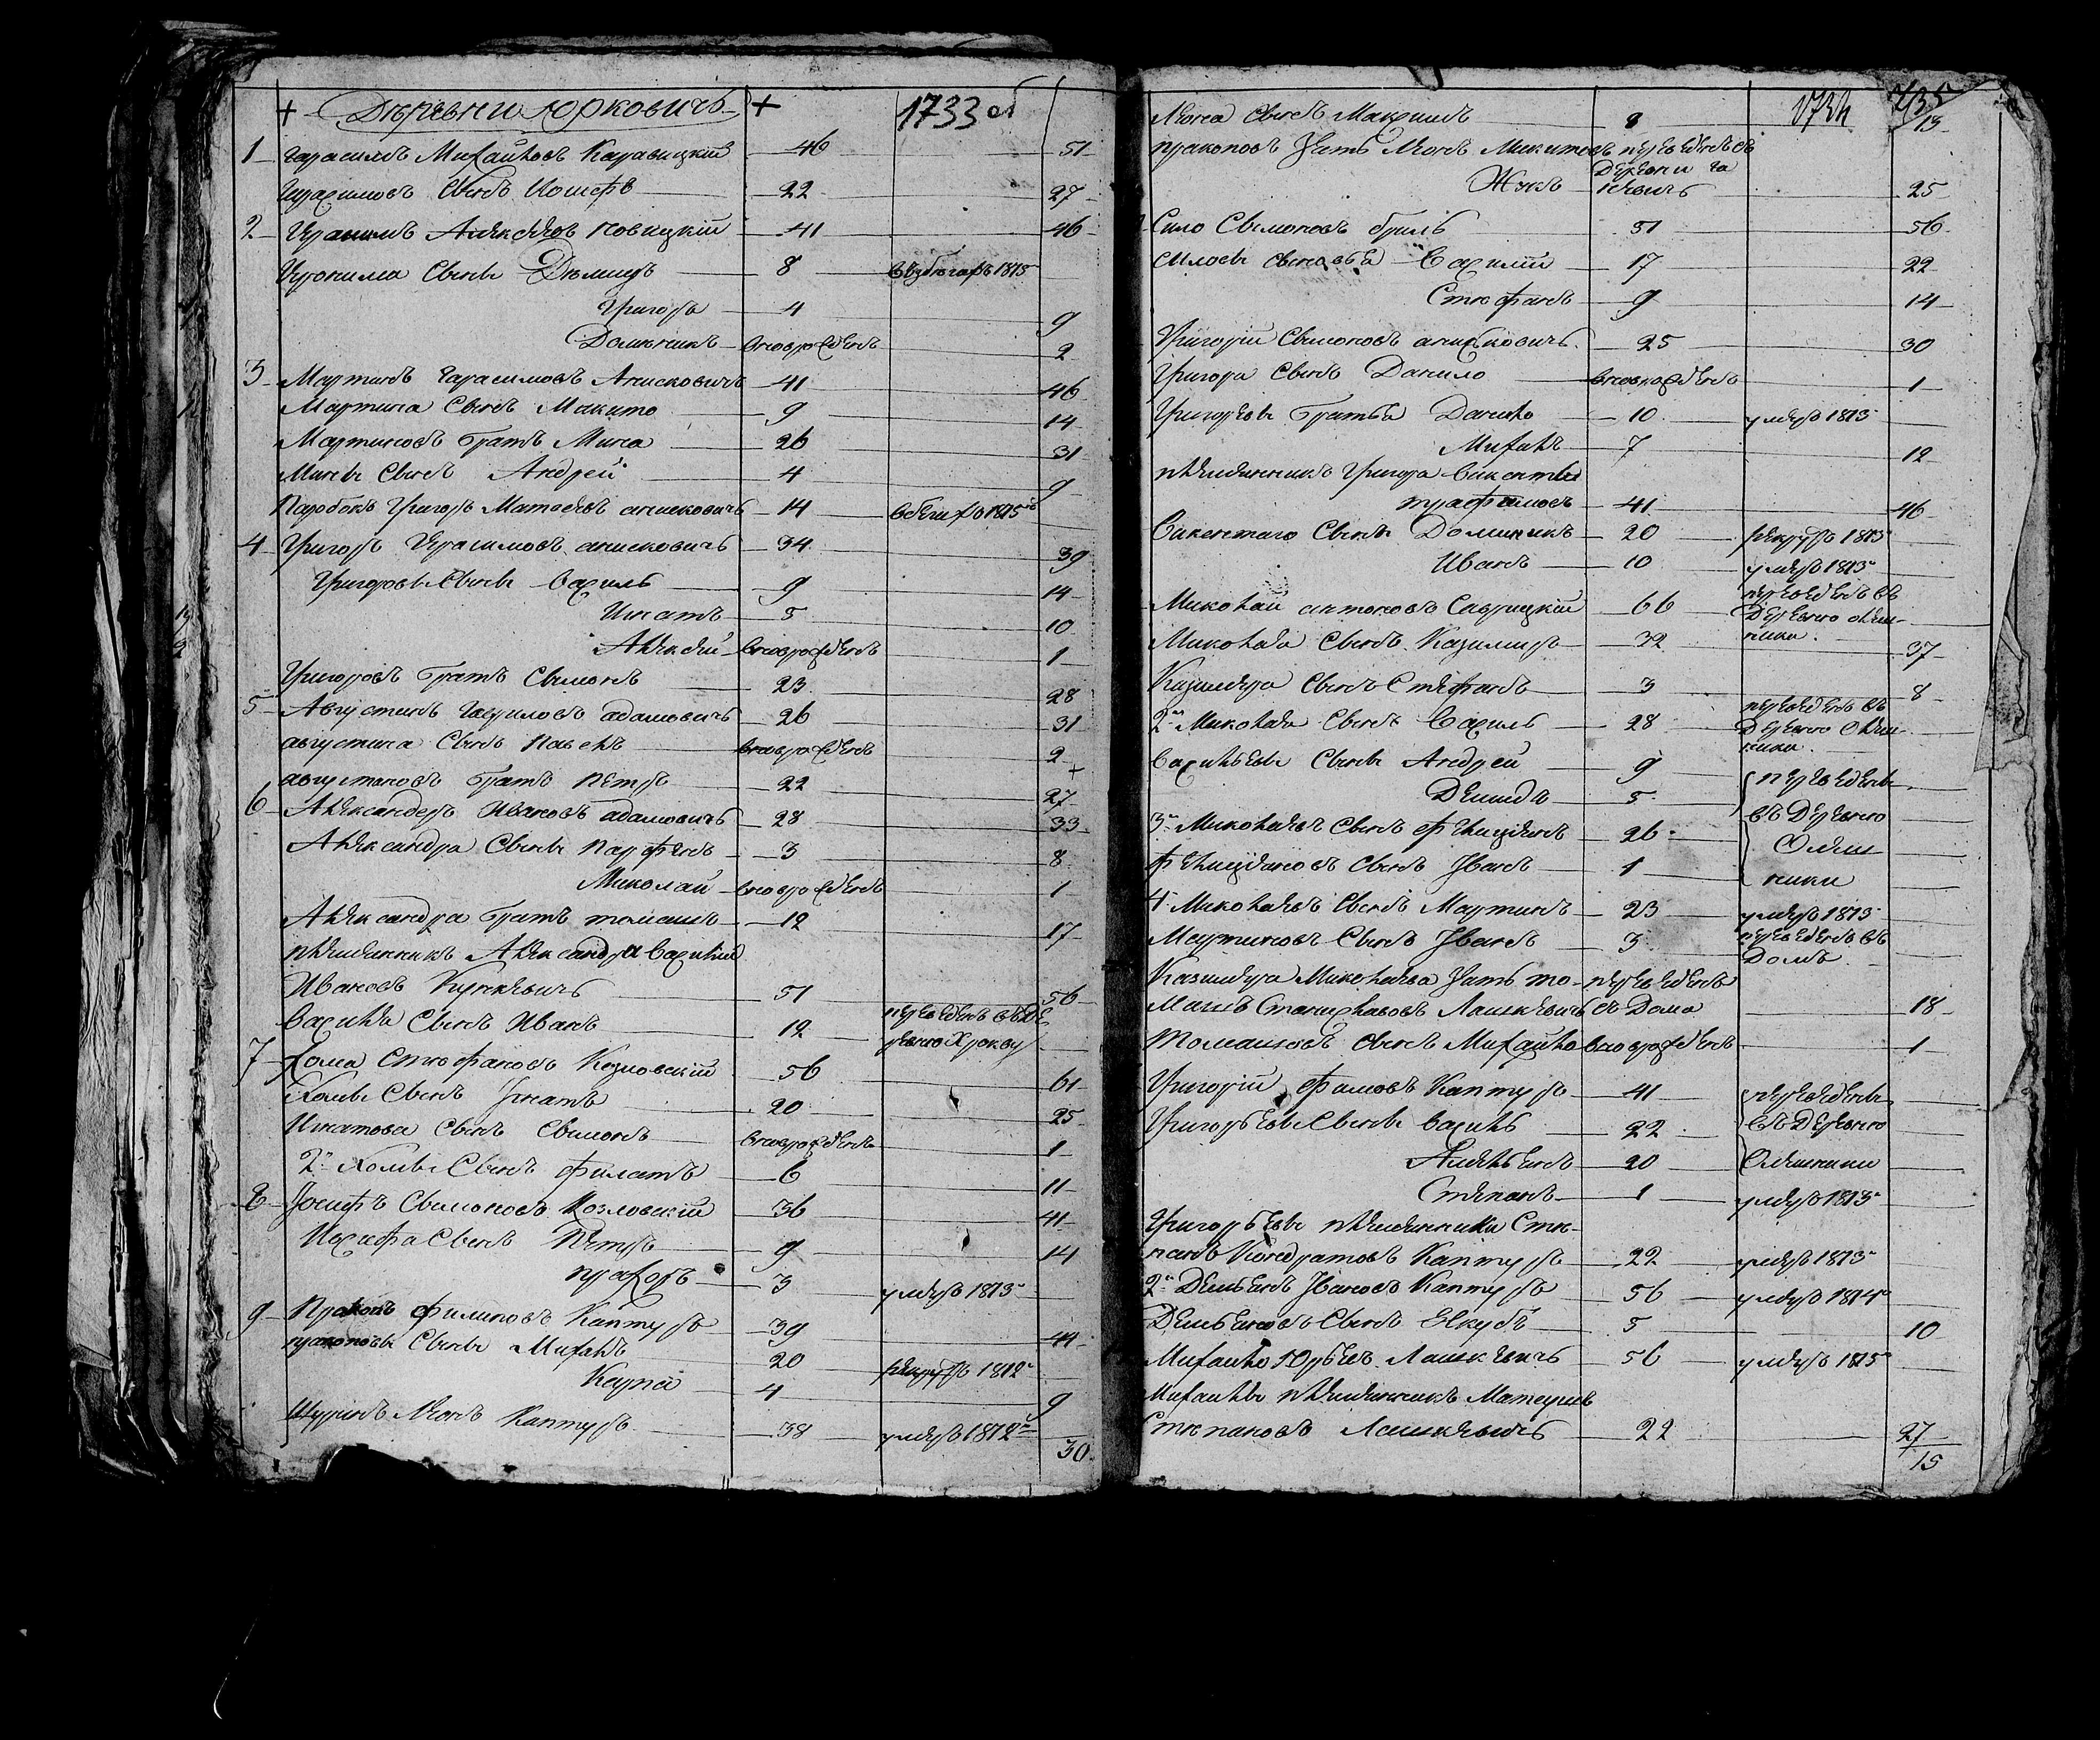 + Дѣревни Юрковичъ + 1733 об
1 Гарасимъ Михайловъ Каравицкій 46 51
Герасимовъ Сынъ Иосифъ 22 27
2 Алексѣевъ Новицкій 41 46
Иеронима Сыны 8 1813
Григоръ 4 9
Доминикъ вноврожденъ 2
3 Мартинъ Гарасимовъ Анисковичъ 41 46
Мартина Сынъ Микито 9 14
Мартиновъ братъ Мина 26 31
Мины Сынъ Андрей 4 9
Паробокъ Григоръ Матвѣевъ анисковичъ 14 вбегах 1815
4 Григоръ Герасимовъ анисковичъ 34 39
Григоровы Сыны Василь 9 14
Игнатъ 5 10
Алексѣй вноврожденъ 1
Григоровъ братъ Сымонъ 23 28
5 Августинъ Гавриловъ адамовичъ 26 31
августина Сынъ Павелъ вноврожденъ 2
августиновъ братъ Петръ 22 27
6 Александеръ Ивановъ адамовичъ 28 33
Александра Сыны Парфенъ 3 8
Миколай вноврожденъ 1
Александра братъ томашъ 12 17
племянникъ Александра Василій
Ивановъ 51 56
Василя Сынъ Иванъ 12 переведенъ въ де
ревню
7 Хома Стефановъ Козловскій 56 61
Хомы Сынъ Игнатъ 20 25
Игнатова Сынъ Сымонъ вноврожденъ 1
2й Хомы Сынъ филатъ 6 11
8 Іосифъ Сымоновъ Козловскій 36 41
Иосифа Сынъ Петръ 9 14
прахоръ 3 умеръ 1813
9 Пракопъ филиповъ Каптуръ 39 44
пракоповы Сыны Михалъ 20 рекрутъ 1812
Карпа 4 9
Шуринъ Леонъ Каптуръ 38 умеръ 1812
30
1734 735
Леона Сынъ Макримъ 8 13
пракоповъ Зять Леонъ Микитовъ переведенъ съ
Деревни
Жукъ 25
Сило Сымоновъ бриль 51 56
силовы сыновья Василій 17 22
Стефанъ 9 14
Григорій Сымоновъ анисковичъ 25 30
Григора Сынъ Данило вноврожденъ 1
Григоровы братья Данило 10 умеръ 1813
Михалъ 7 12
племянникъ Григора Викентый
трафимовъ 41 46
Викентаго Сыны Доминикъ 20 рекрутъ 1813
Иванъ 10 умеръ 1813
Миколай антоновъ Саврицкій 66 переведенъ въ
Деревню
Миколая Сынъ Казимиръ 32 37
Казимера Сынъ Стефанъ 3 8
2й Миколая Сынъ Василь 28 переведенъ въ
Деревню
Васильевы Сыны Андрей 9 переведены
Демидъ 5 въ Деревню
3й Миколаевъ Сынъ фелиціянъ 26
фелиціяновъ Сынъ Іванъ 1
4й Миколаевъ Сынъ Мартинъ 23 умеръ 1813
Мартиновъ Сынъ Іванъ 3 переведенъ въ
Домъ
Казимера Миколаева Зять то- переведенъ
машъ Станиславовъ Лашкевичъ съ Дома 18
Томашовъ Сынъ Михайло вноврожденъ 1
Григорій фамовъ Каптуръ 41 переведены
Григорьевы Сыны Василь 22 въ Деревню
20
Степанъ 1 умеръ 1813
Григорьевы племянники Сте-
панъ Кондратовъ Каптуръ 22 умеръ 1813
2й Демьянъ Івановъ Каптуръ 56 умеръ 1814
Демьяновъ Сынъ Якубъ 5 10
Михайло Юрьевъ Лашкевичъ 56 умеръ 1815
Михайлы племянникъ Матеушъ
Степановъ Лашкевичъ 22 27
15